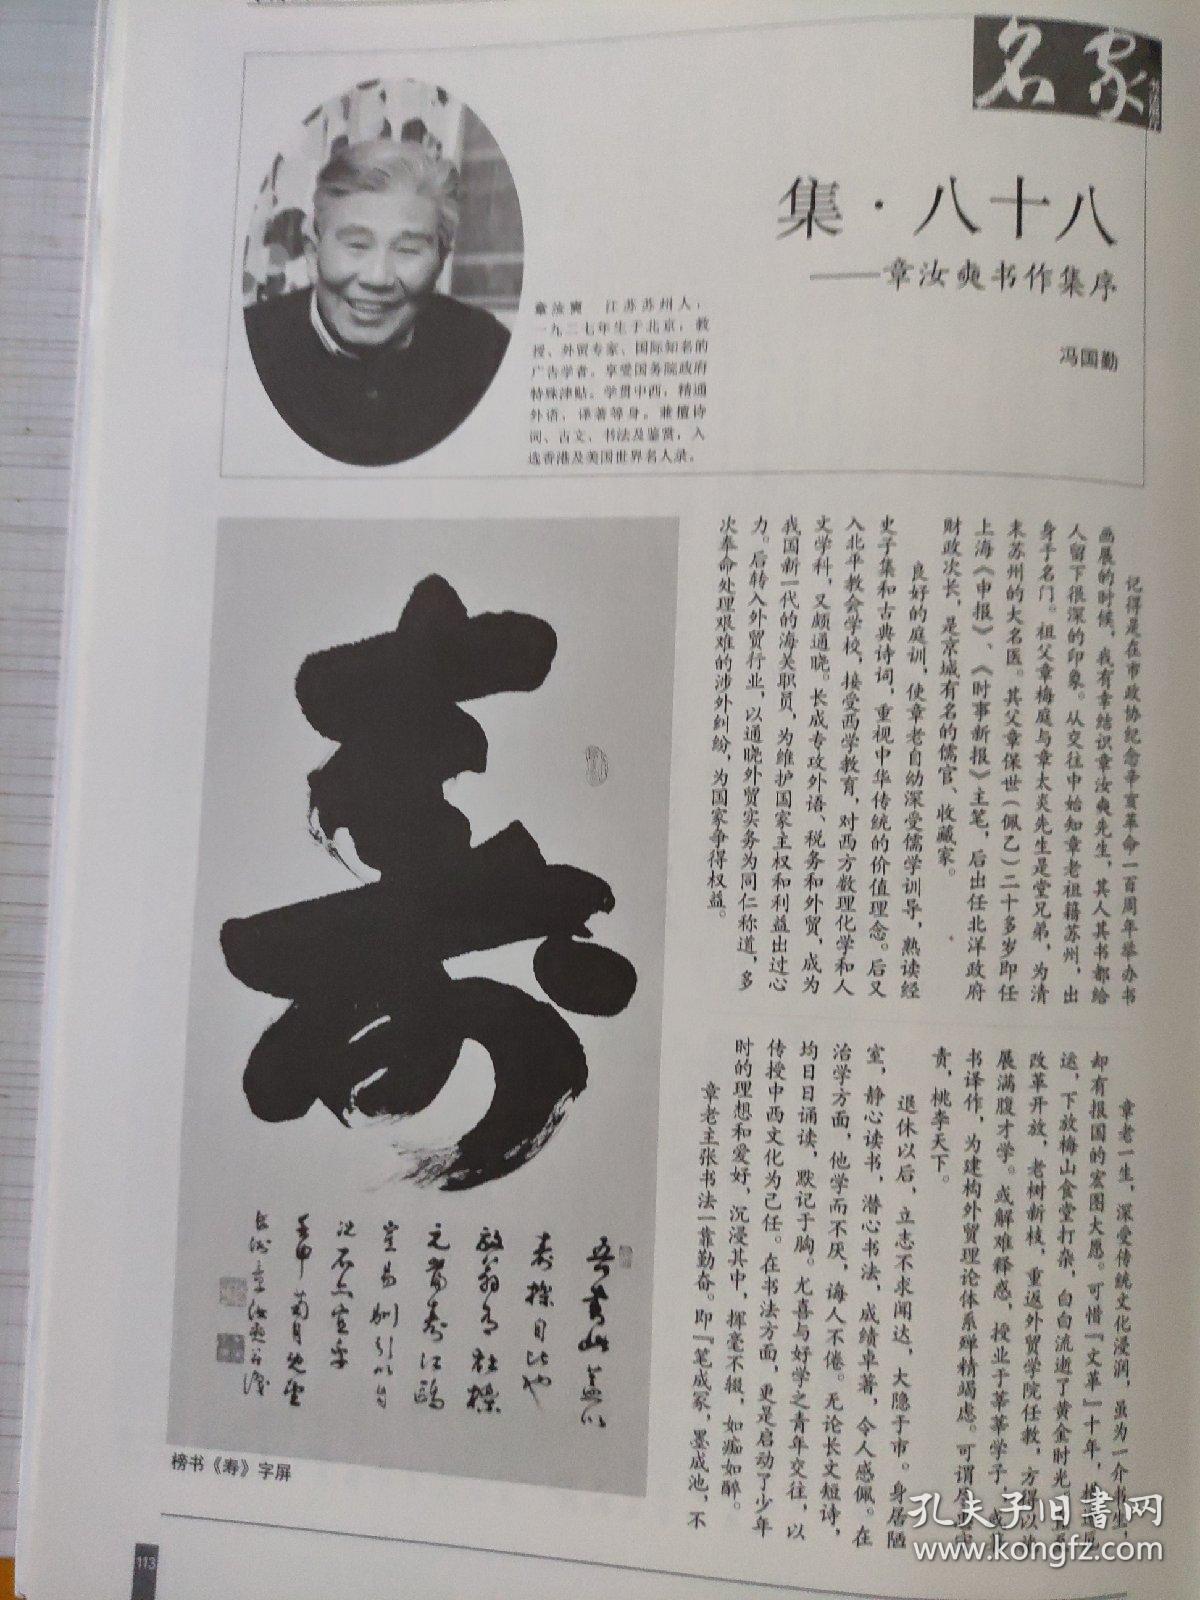 名家
集·八十八
——章汝奭书作集序
冯国勤
章汝奭 江苏苏州人，
一九二七年生于北京，教
授、外贸专家、国际知名的
广告学者。享受国务院政府
特殊津贴。学贯中西，精通
外语，译著等身。兼擅诗
词、古文、书法及鉴赏，入
选香港及美国世界名人录。
记得是在市政协纪念辛亥革命一百周年举办书
画展的时候，我有幸结识章汝奭先生，其人其书都给
人留下很深的印象。从交往中始知章老祖籍苏州，出
身于名门。祖父章梅庭与章太炎先生是堂兄弟，为清
末苏州的大名医。其父章保世（佩乙）二十多岁即任
上海《申报》、《时事新报》主笔，后出任北洋政府
财政次长，是京城有名的儒官、收藏家。
良好的庭训，使章老自幼深受儒学训导，熟读经
史子集和古典诗词，重视中华传统的价值理念。后又
入北平教会学校，接受西学教育，对西方数理化学和人
文学科，又颇通晓。长成专攻外语、税务和外贸，成为
我国新一代的海关职员，为维护国家主权和利益出过心
力。后转入外贸行业，以通晓外贸实务为同仁称道，多
次奉命处理艰难的涉外纠纷，为国家争得权益。
章老一生，深受传统文化浸润，虽为一介书生，
却有报国的宏图大愿。可惜『文革』十年，
运，下放梅山食堂打杂，白白流逝了黄金时光。
改革开放，老树新枝，重返外贸学院任教，方得以
展满腹才学。或解难释惑，授业于莘莘学子，
书译作，为建构外贸理论体系殚精竭虑。可谓
责，桃李天下。
退休以后，立志不求闻达，大隐于市。身居陋
室，静心读书，潜心书法，成绩卓著，令人感佩。在
治学方面，他学而不厌，诲人不倦。无论长文短诗，
均日日诵读，默记于胸。尤喜与好学之青年交往，以
传授中西文化为己任。在书法方面，更是启动了少年
时的理想和爱好，沉浸其中，挥毫不辍，如痴如醉。
章老主张书法一靠勤奋。即『笔成冢，墨成池，不
寿
榜书《寿》字屏
113
孔夫子旧书网
www.kongfz.com